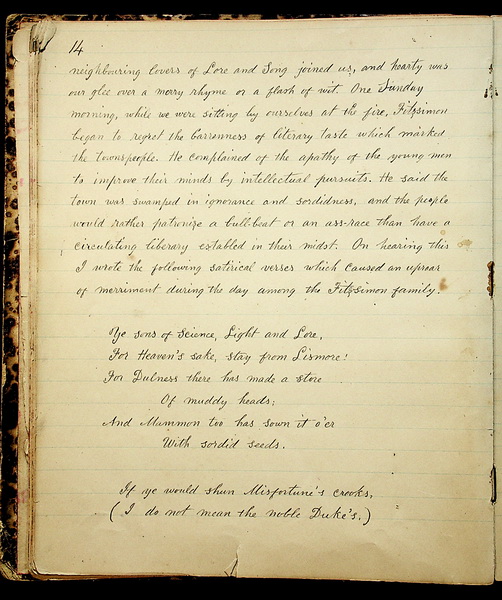 14
neighbouring lovers of Lore and Song joined us, and hearty was
our glee over a merry rhyme or a flash of wit. One Sunday
morning, while we were sitting by ourselves at the fire, Fitzsimon
began to regret the barrenness of literary taste which marked
the townspeople. He complained of the apathy of the young men
to improve their minds by intellectual pursuits. He said the
town was swamped in ignorance and sordidness, and the people
would rather patronize a bull-beat or an ass-race than have a
circulating liberary establed in their midst. On hearing this
I wrote the following satirical verses which caused an uproar
of merriment during the day among the Fitzsimon family.
Ye sons of Science, Light and Lore,
For Heaven's sake, stay from Lismore!
For Dulness there has made a store
Of muddy heads;
And Mammon too has sown it o'er
With sordid seeds.
If ye would shun Misfortune's crooks,
(I do not mean the noble Duke's.)